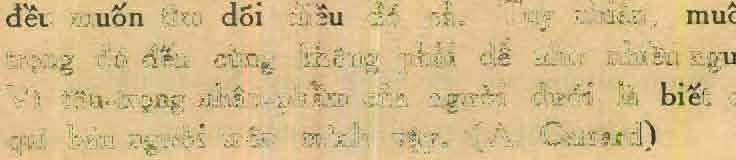 đều muốn dối điều đó cả. Tuy nhiên, muố
trọng đó đến cùng không phải dễ như nhiều ngư
Vì tôn-trọng nhân-phẩm của người dưới là biết
quí báu người mình vậy. (A. Carrard)